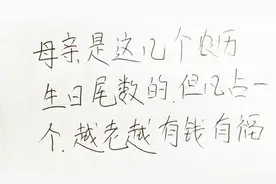 母亲是这几个农历
生日尾数的.但凡占一
个.越老越有钱有福